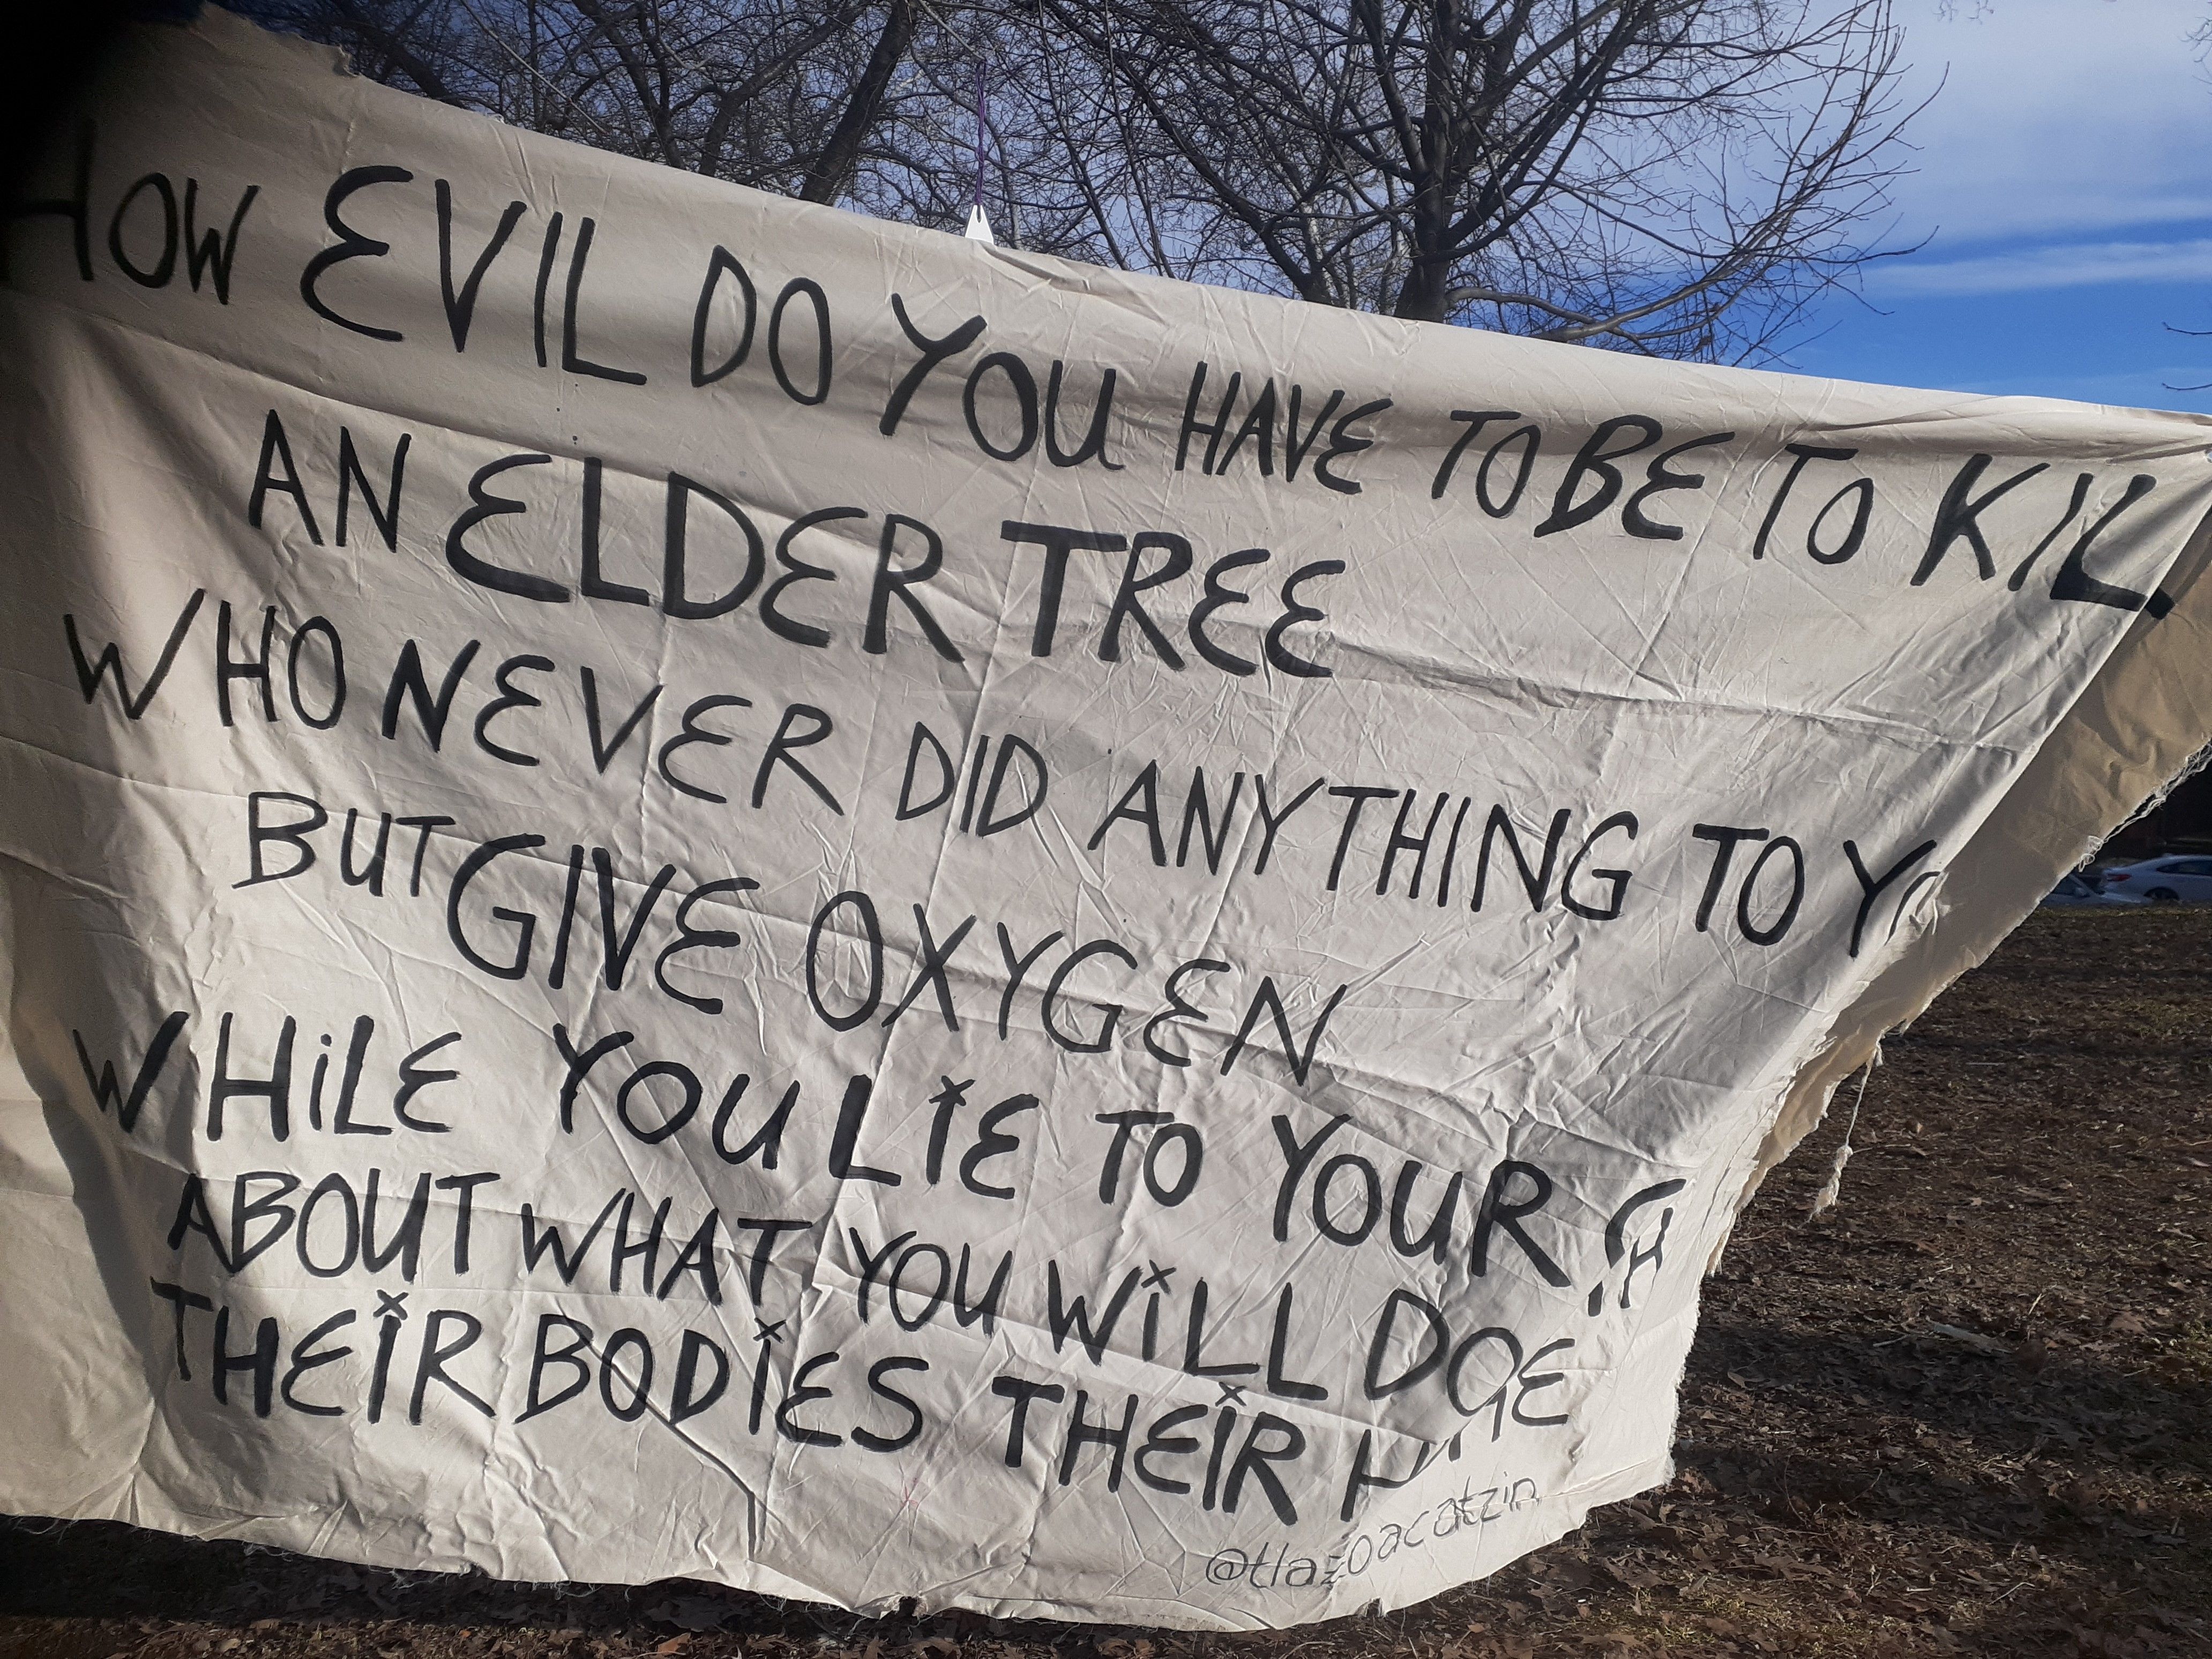 HOW EVIL DO YOU HAVE TO BE TO KIL
AN ELDER TREE
WHO NEVER DID ANYTHING TO
BUT GIVE OXYGEN
WHiLE YOU LiE TO YOUR
ABOUT WHAT YOU WiLL DO
THEiR BODiES THEiR
@tlazoacatzin